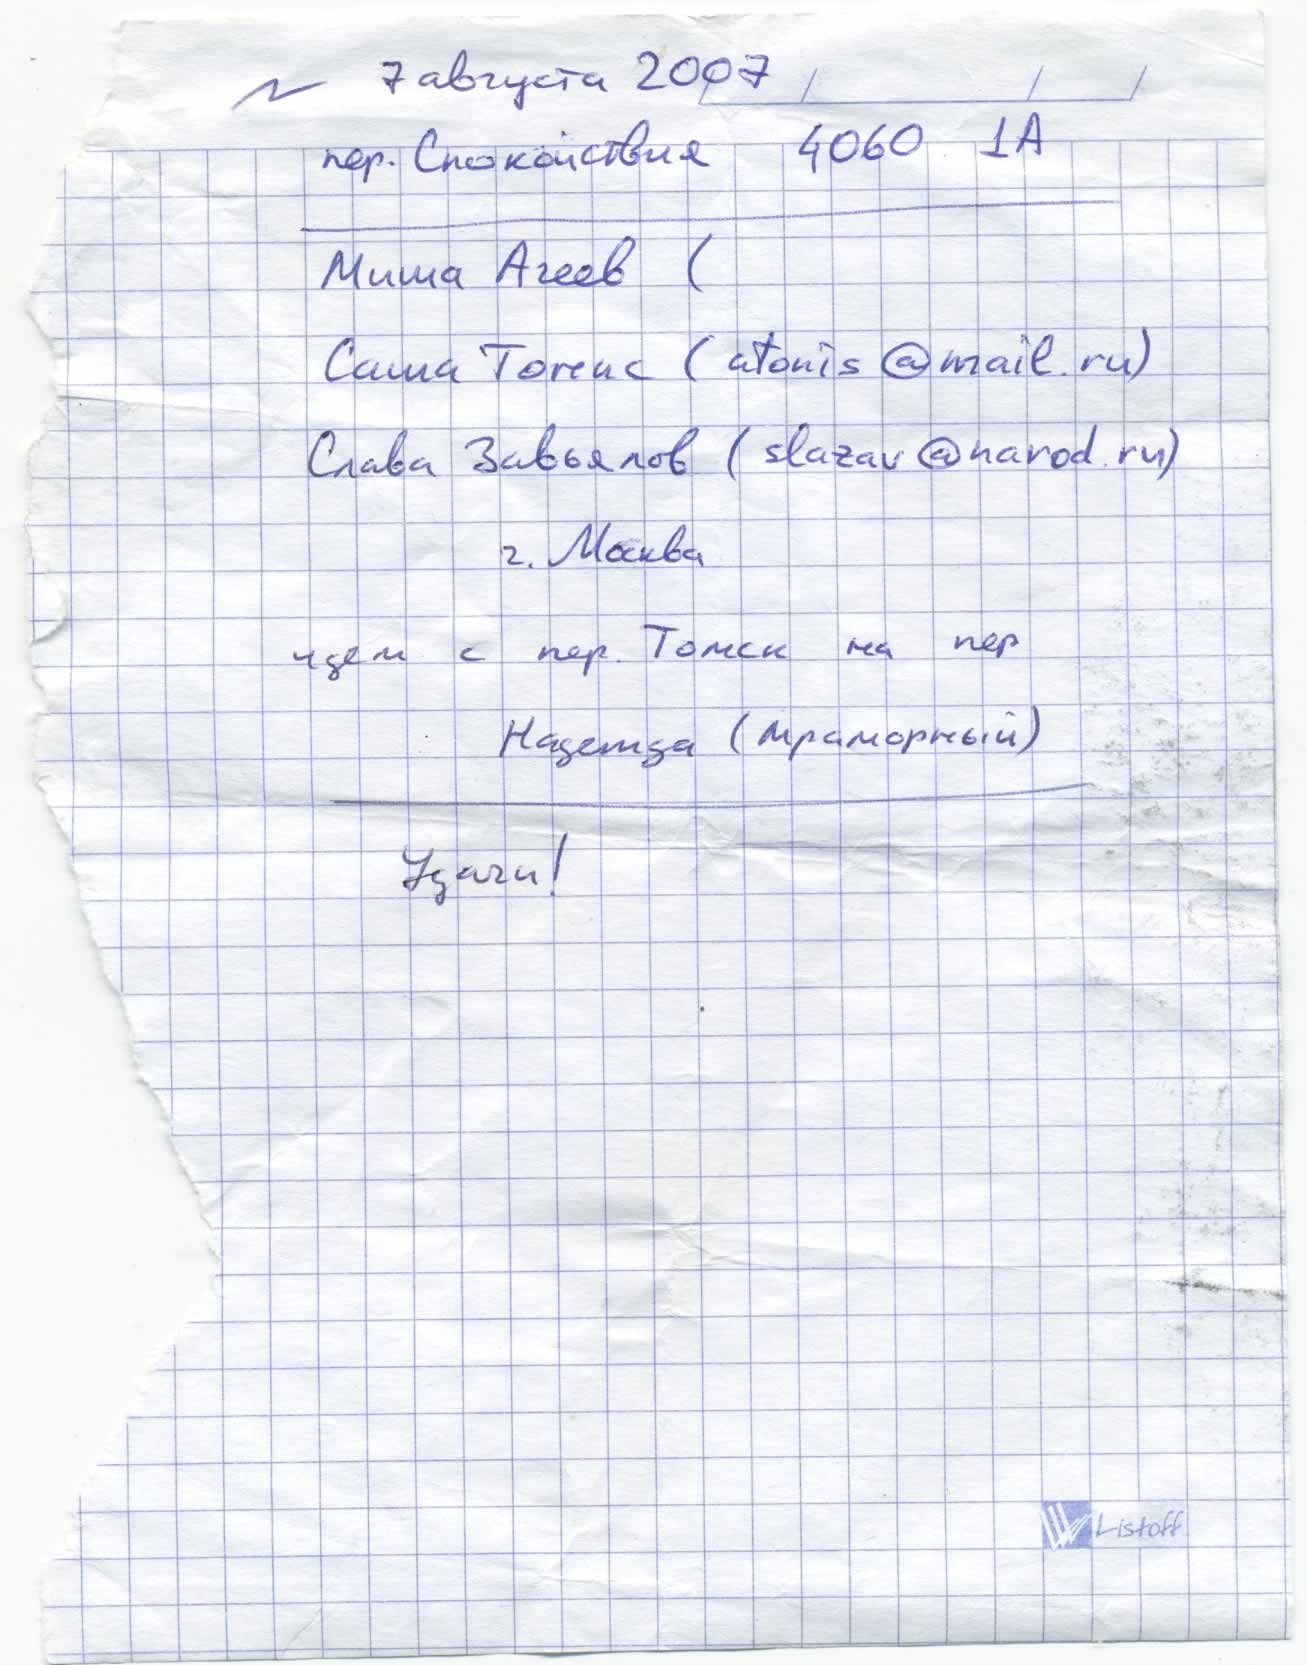 7 августа 2007
пер. Спокойствия 4060 1А
Миша Агеев (
Саша Тогенс (atonis@mail.ru)
Слава Завьялов (slazav@narod.ru)
г. Москва
идем с пер. Томск на пер
Надежда (мраморный)
Удачи!
Listoff